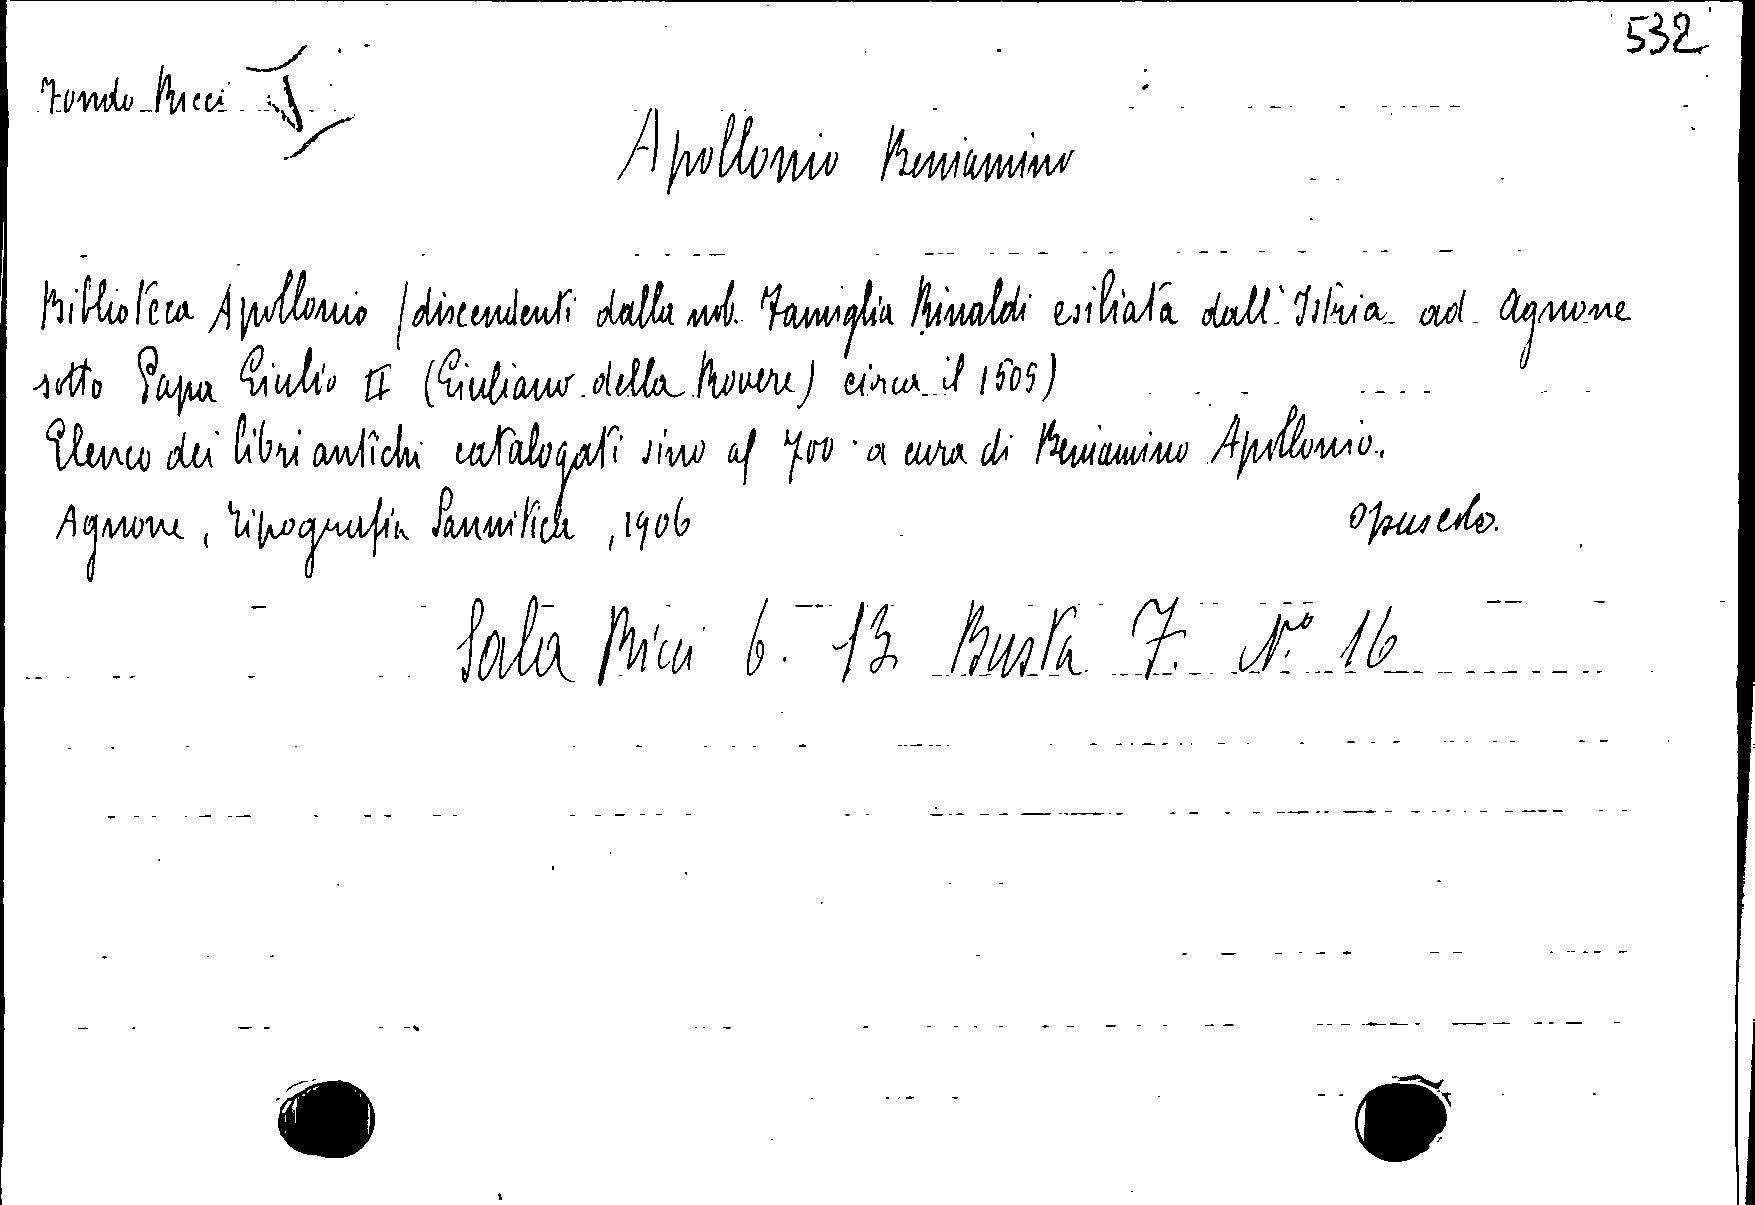 532
Fondo Ricci I
Apollonio Beniamino
Biblioteca Apollonio (discendenti dalla nob. Famiglia Rinaldi esiliata dall'Istria ad Agnone
sotto Papa Giulio II (Giuliano della Rovere) circa il 1505)
Elenco dei libri antichi catalogati sino al 700 a cura di Beniamino Apollonio.
Agnone, Tipografia Sannitica, 1906 opuscolo.
Sala Ricci 6. 13 Busta 7. N.º 16